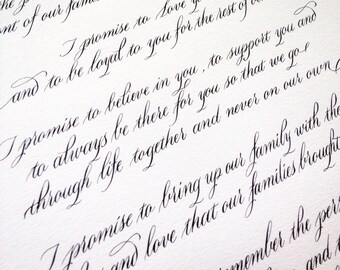 the p
ont of our fami
I promise to love yo
and to be loyal to you for the rest of ou
I promise to believe in you, to support you and
to always be there for you so that we go
through life together and never on our own
I promise to bring up our family with the
and love that our families brought
remember the pers
and t